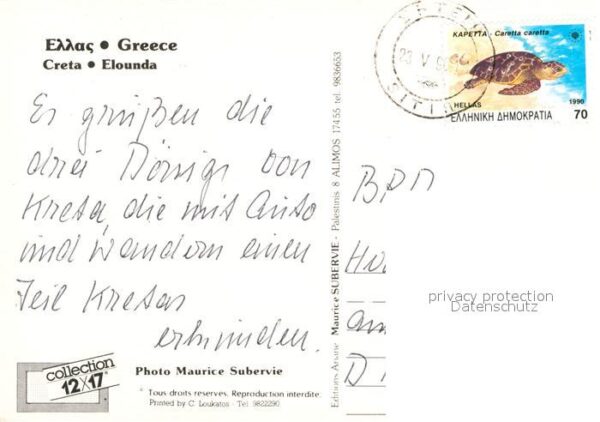 Ελλας • Greece
Creta • Elounda
Es grüßen die
drei Königs von
Kreta, die mit Auto
und Wandern einen
Teil Kretas
erkunden.
collection
12x17
Photo Maurice Subervie
Tous droits reserves. Reproduction interdite.
Printed by C. Loukatos - Tel 9822290
Editions Ariane - Maurice SUBERVIE - Palestinis 8 ALIMOS 174 55 tel. 9836653
ΣΗΤΕΙΑ
23 V 9
SITIA
ΚΑΡΕΤΤΑ - Caretta caretta
HELLAS 1990
ΕΛΛΗΝΙΚΗ ΔΗΜΟΚΡΑΤΙΑ 70
BRD
privacy protection
Datenschutz